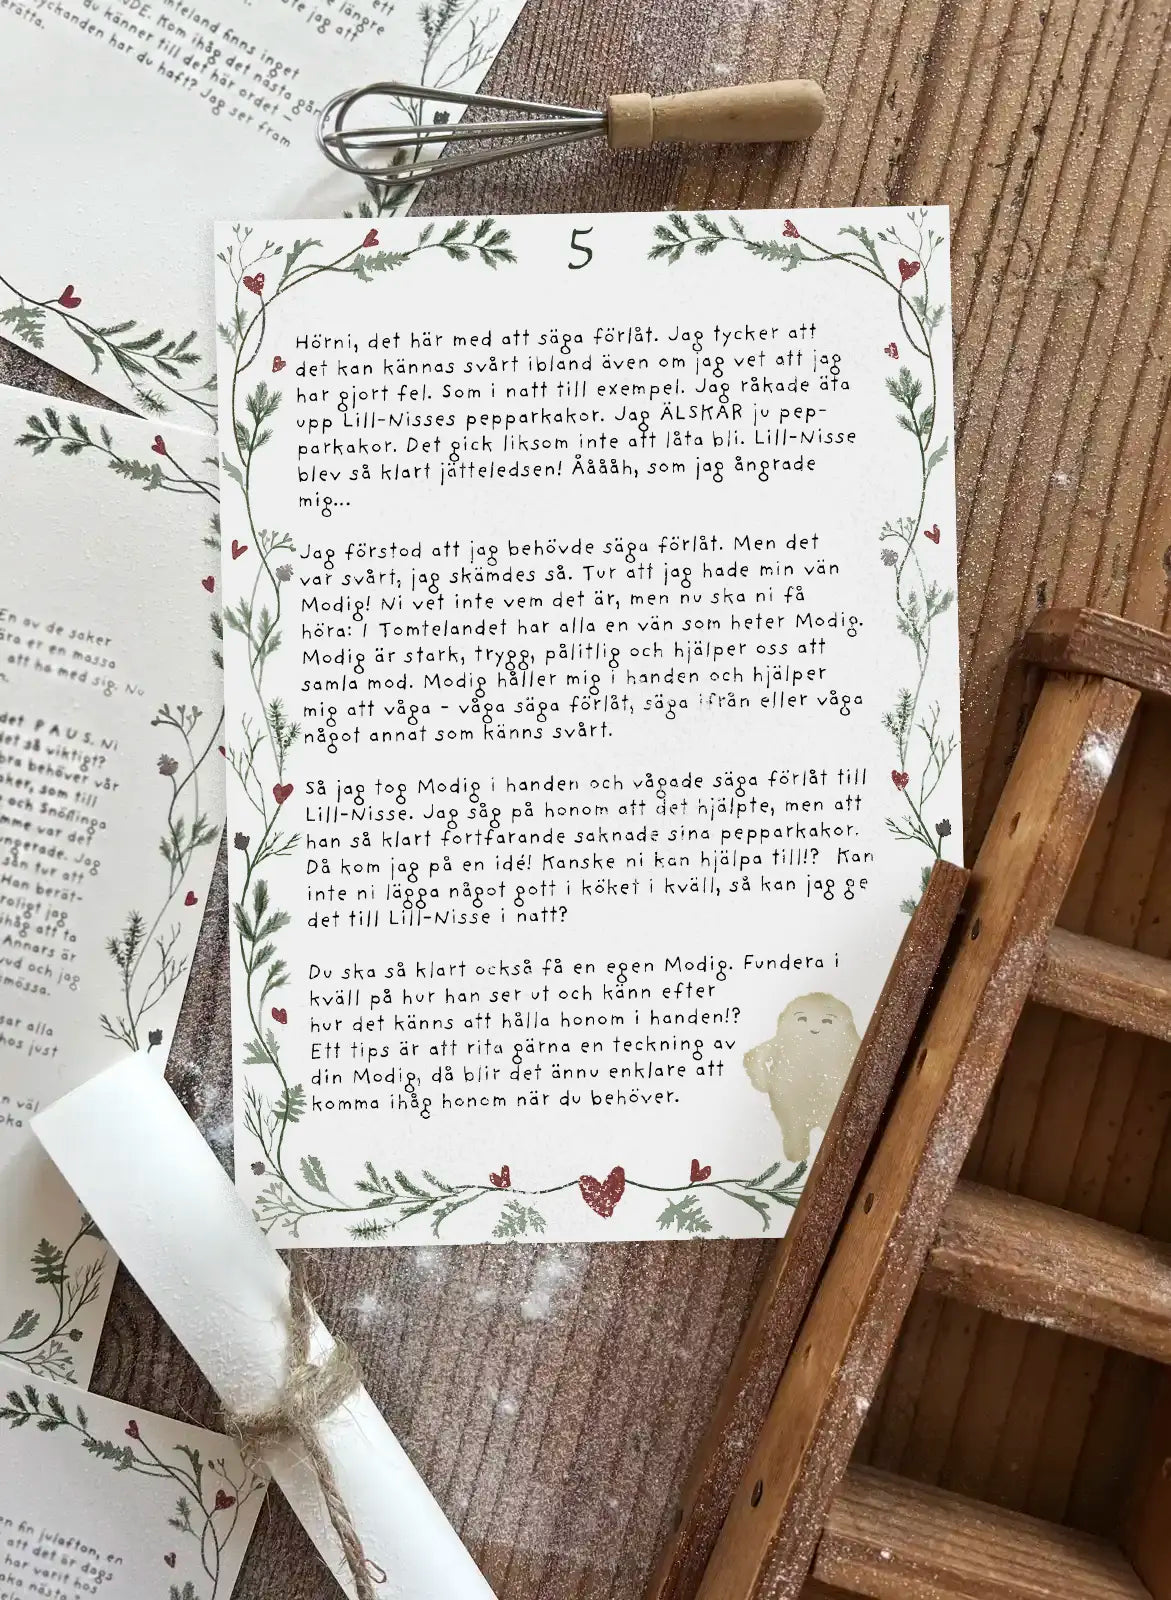 ett
längre
jag att
mteland finns inget
DE. Kom ihåg det nästa gån
du känner till det här ordet –
yckanden har du haft? Jag ser fram
erätta.
5
Hörni, det här med att säga förlåt. Jag tycker att
det kan kännas svårt ibland även om jag vet att jag
har gjort fel. Som i natt till exempel. Jag råkade äta
upp Lill-Nisses pepparkakor. Jag ÄLSKAR ju pep-
parkakor. Det gick liksom inte att låta bli. Lill-Nisse
blev så klart jätteledsen! Ååååh, som jag ångrade
mig...
Jag förstod att jag behövde säga förlåt. Men det
var svårt, jag skämdes så. Tur att jag hade min vän
Modig! Ni vet inte vem det är, men nu ska ni få
höra: I Tomtelandet har alla en vän som heter Modig.
Modig är stark, trygg, pålitlig och hjälper oss att
samla mod. Modig håller mig i handen och hjälper
mig att våga - våga säga förlåt, säga ifrån eller våga
något annat som känns svårt.
Så jag tog Modig i handen och vågade säga förlåt till
Lill-Nisse. Jag såg på honom att det hjälpte, men att
han så klart fortfarande saknade sina pepparkakor.
Då kom jag på en idé! Kanske ni kan hjälpa till!? Kan
inte ni lägga något gott i köket i kväll, så kan jag ge
det till Lill-Nisse i natt?
Du ska så klart också få en egen Modig. Fundera i
kväll på hur han ser ut och känn efter
hur det känns att hålla honom i handen!?
Ett tips är att rita gärna en teckning av
din Modig, då blir det ännu enklare att
komma ihåg honom när du behöver.
En av de saker
ära er en massa
att ha med sig. Nu
det PAUS. Ni
det så viktigt?
bra behöver vår
aker, som till
och Snöflinga
mme var det
ungerade. Jag
sån tur att
Han berät-
roligt jag
ihåg att ta
Annars är
vud och jag
mössa.
sar alla
hos just
n väl
oka
en fin julafton, en
att det är dags
har varit hos
aka nästa